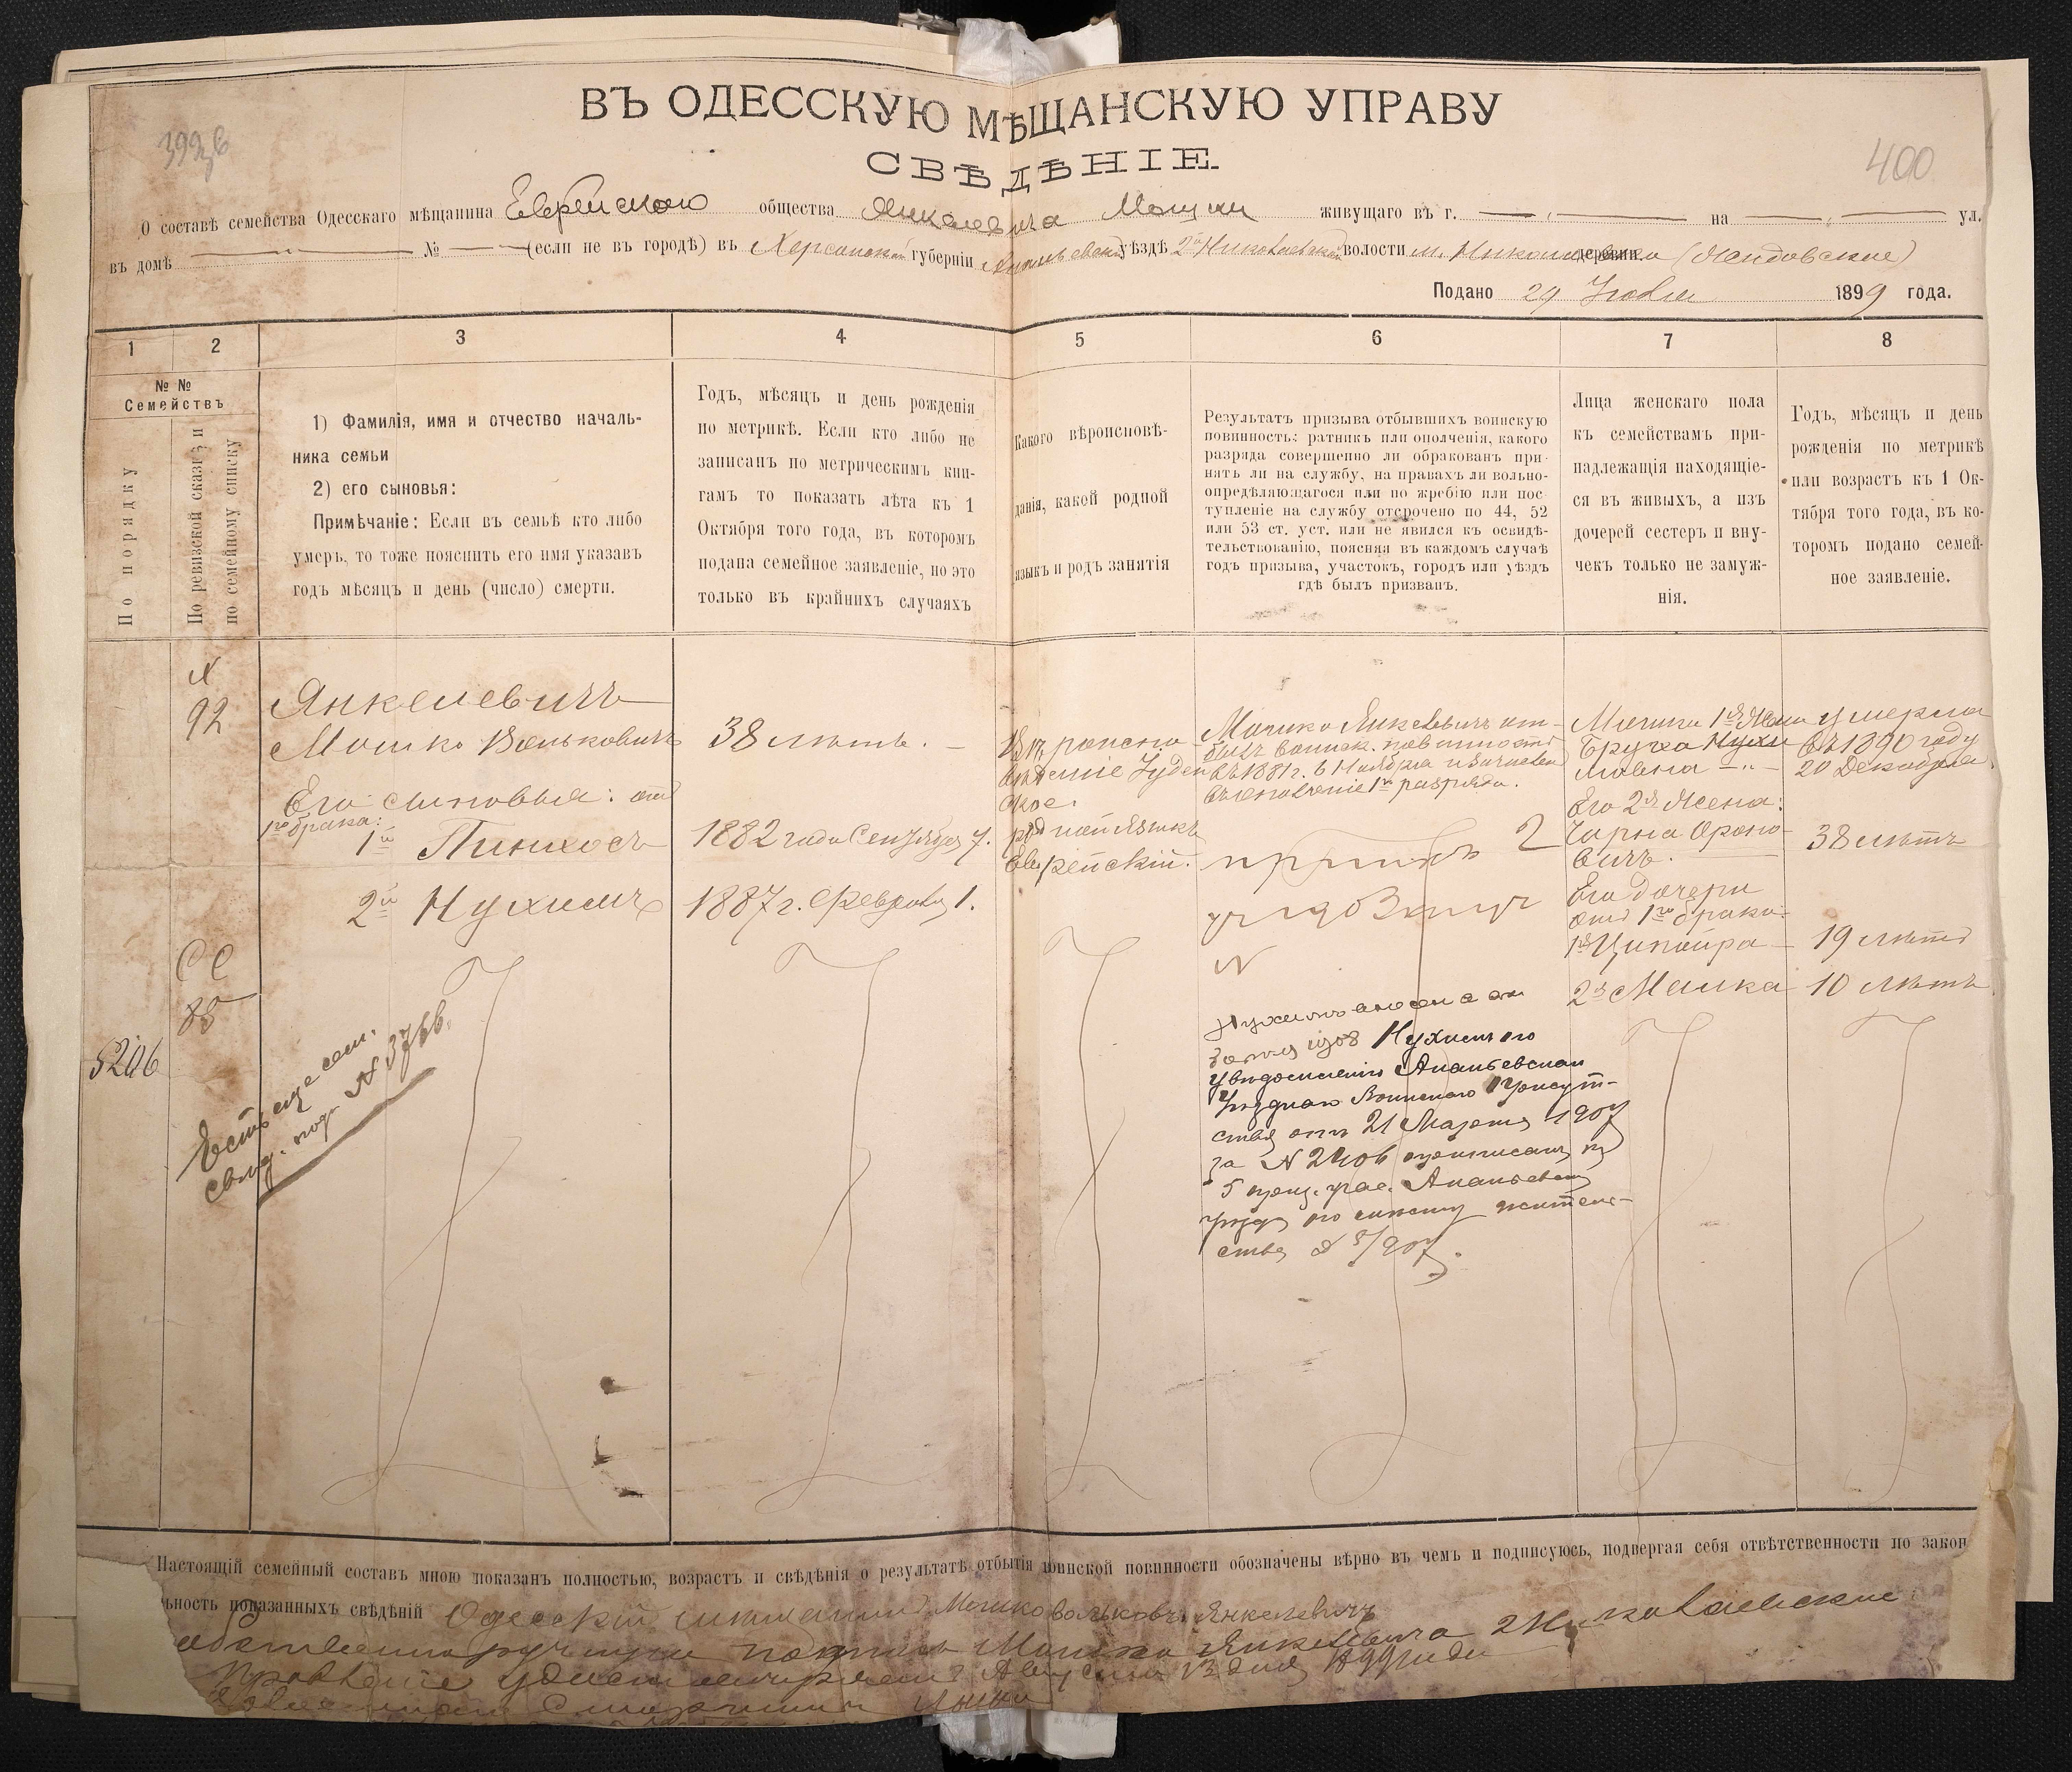 ВЪ ОДЕССКУЮ МѢЩАНСКУЮ УПРАВУ
СВѢДѢНІЕ.
400
О составѣ семейства Одесскаго мѣщанина Еврейского общества Янкелевича Мошки живущаго въ г. на ул.
въ домѣ № (если не въ городѣ) въ Херсонской губерніи Ананьевскомъ уѣздѣ 2й Николаевской волости м. Николаевка деревни
Подано 29 1899 года.
1 2 3 4 5 6 7 8
№ №
Семействъ
По порядку
По ревизской сказкѣ и
по семейному списку
1) Фамилія, имя и отчество началь-
ника семьи
2) его сыновья:
Примѣчаніе: Если въ семьѣ кто либо
умеръ, то тоже пояснить его имя указавъ
годъ мѣсяцъ и день (число) смерти.
Годъ, мѣсяцъ и день рожденія
по метрикѣ. Если кто либо не
записанъ по метрическимъ кни-
гамъ то показать лѣта къ 1
Октября того года, въ которомъ
подана семейное заявленіе, но это
только въ крайнихъ случаяхъ
Какого вѣроисповѣ-
данія, какой родной
языкъ и родъ занятія
Результатъ призыва отбывшихъ воинскую
повинность: ратникъ или ополченія, какого
разряда совершенно ли обракованъ при-
нятъ ли на службу, на правахъ ли вольно-
опредѣляющагося или по жребію или пос-
тупленіе на службу отсрочено по 44, 52
или 53 ст. уст. или не явился къ освидѣ-
тельствованію, поясняя въ каждомъ случаѣ
годъ призыва, участокъ, городъ или уѣздъ
гдѣ былъ призванъ.
Лица женскаго пола
къ семействамъ при-
надлежащія находящіе-
ся въ живыхъ, а изъ
дочерей сестеръ и вну-
чекъ только не замуж-
нія.
Годъ, мѣсяцъ и день
рожденія по метрикѣ
или возрастъ къ 1 Ок-
тября того года, въ ко-
торомъ подано семей-
ное заявленіе.
N
92
Янкелевичъ
Мошко Вольковичъ
Его сыновья: отъ
1го брака:
1й Пинхосъ
2й Нухимъ
38 лѣтъ. —
1882 года Сентября 7.
1887 г. Февраля 1.
Вѣроиспо-
вѣданіе Іудей-
ское.
родной языкъ
Еврейскій.
Мошко Янкелевичъ от-
былъ воинск. повинность
въ 1881 г. 6 Ноября и зачисленъ
въ ополченіе 1го разряда.
Мошки 1я Жена
Бруха Нухи-
мовна
Его 2я Жена:
Чарна Ароно-
вичъ.
Его дочери
отъ 1го брака
1я Ципойра
2я Малка
умерла
въ 1890 году
20 Декабря.
38 лѣтъ
19 лѣтъ
10 лѣтъ
88
5206
Есть еще сем.
свѣд. под. N 3766.
N
Нухимъ
Нухимъ по
увѣдомленію Ананьевскаго
Уѣзднаго Воинскаго Присут-
ствія отъ 21 Марта 1907
за N 2406 приписанъ къ
5 приз. учас. Ананьевск.
уѣзда по списку житель-
ства
Настоящій семейный составъ мною показанъ полностью, возрастъ и свѣдѣнія о результатѣ отбытія воинской повинности обозначены вѣрно въ чемъ и подписуюсь, подвергая себя отвѣтственности по закон
ьность показанныхъ свѣдѣній Одесскій мѣщанинъ Мошко Вольковъ Янкелевичъ
подпись Мошко Янкелевича 2 Николаевское
Правленіе удостовѣряетъ Августа 13 дня 1899 года
Старшина